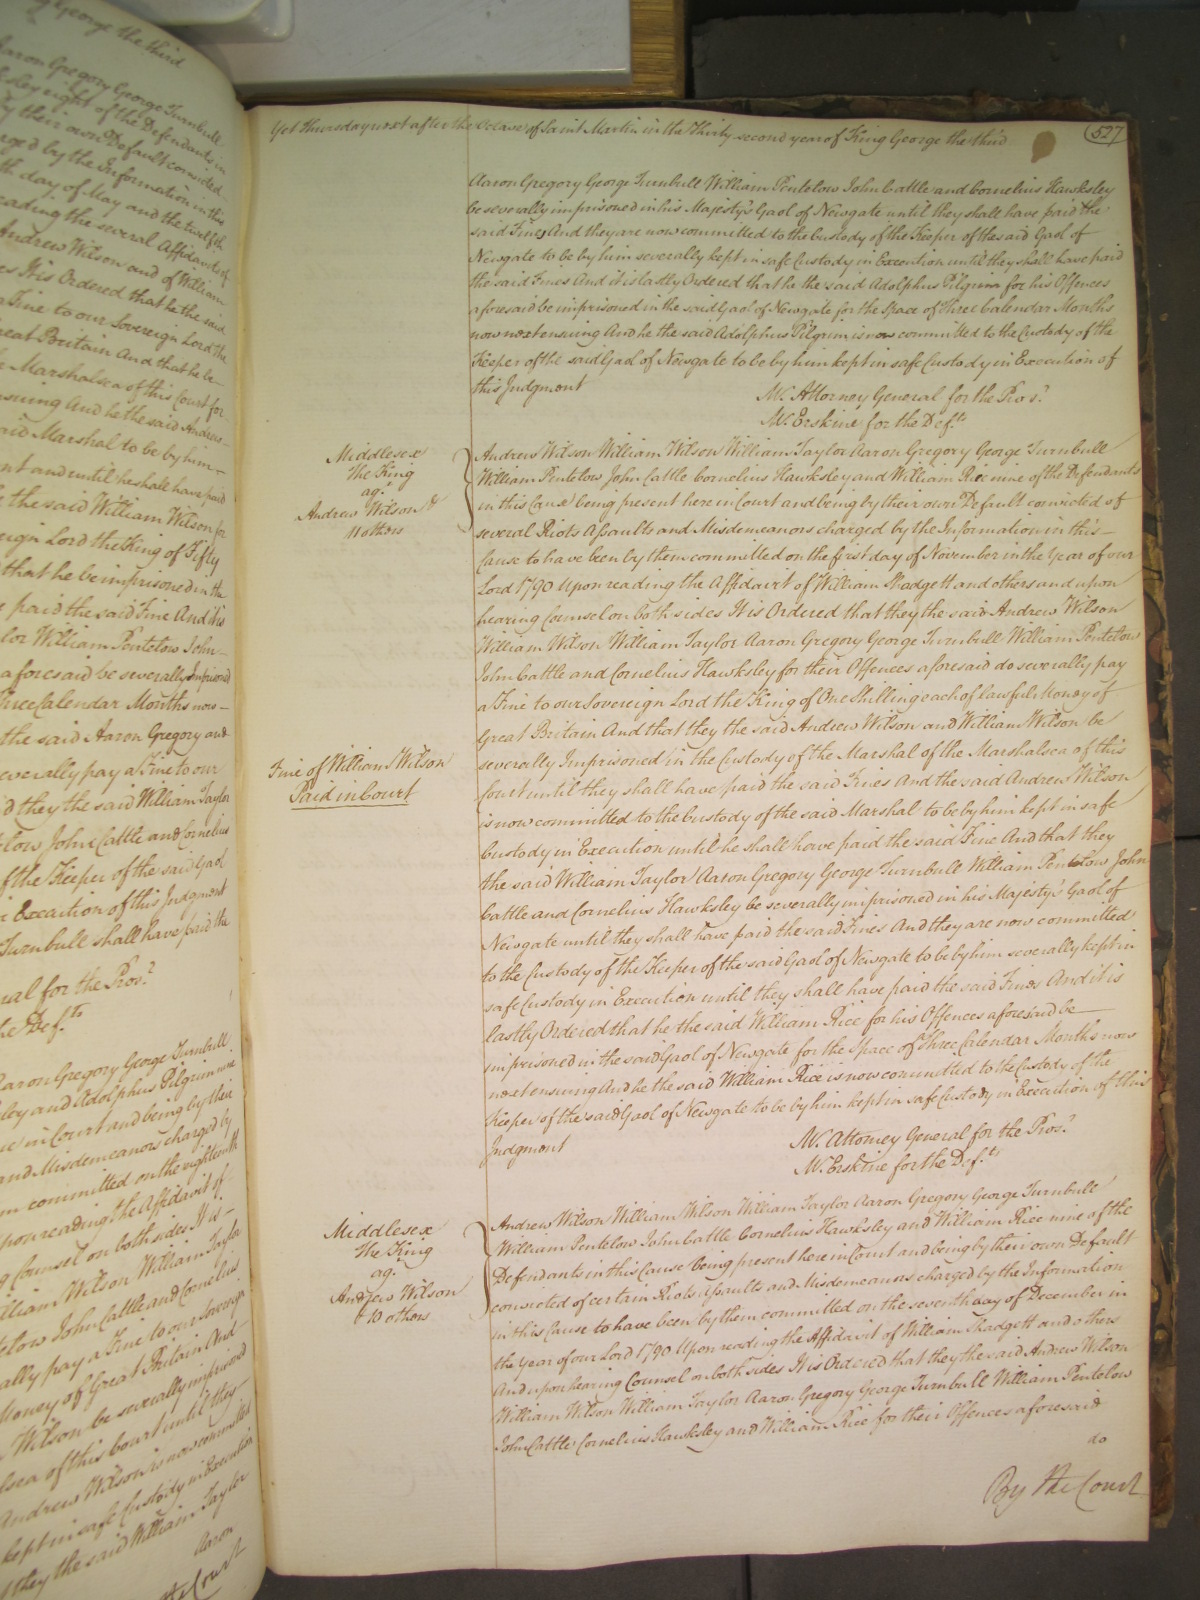 g George the third
Aaron Gregory George Turnbull
ksley eight of the Defendants in
by their own Default convicted
arged by the Information in this
th day of May and the twelfth
reading the several Affidavits of
Andrew Wilson and of William
es It is Ordered that he the said
a Fine to our Sovereign Lord the
reat Britain And that he be
Marshalsea of this Court for
nsuing And he the said Andrew
said Marshal to be by him
nt and until he shall have paid
the said William Wilson for
eign Lord the King of Fifty
that he be imprisoned in the
paid the said Fine And it is
lor William Pentelow John
aforesaid be severally Imprisoned
Three Calendar Months now
the said Aaron Gregory and
everally pay a Fine to our
d they the said William Taylor
tlow John Cattle and Cornelius
f the Keeper of the said Gaol
Execution of this Judgment
Turnbull shall have paid the
ral for the Pros.r
he Def.ts
Aaron Gregory George Turnbull
ley and Adolphus Pilgrim nine
in Court and being by their
and Misdemeanors charged by
m committed on the eighteenth
pon reading the Affidavit of
g Counsel on both sides It is
illiam Wilson William Taylor
telow John Cattle and Cornelius
ally pay a Fine to our Sovereign
Money of Great Britain And
Wilson be severally imprisoned
lsea of this Court until they
Andrew Wilson is now committed
kept in safe Custody in Execution
they the said William Taylor
Aaron
the Court
527
Yet Thursday next after the Octave of Saint Martin in the Thirty second year of King George the third
Aaron Gregory George Turnbull William Pentelow John Cattle and Cornelius Hawksley
be severally imprisoned in his Majesty's Gaol of Newgate until they shall have paid the
said Fines And they are now committed to the Custody of the Keeper of the said Gaol of
Newgate to be by him severally kept in safe Custody in Execution until they shall have paid
the said Fines And it is lastly Ordered that he the said Adolphus Pilgrim for his Offences
aforesaid be imprisoned in the said Gaol of Newgate for the Space of Three Calendar Months
now next ensuing And he the said Adolphus Pilgrim is now committed to the Custody of the
Keeper of the said Gaol of Newgate to be by him kept in safe Custody in Execution of
this Judgment
Mr. Attorney General for the Pros.r
Mr. Erskine for the Def.ts
Middlesex
The King
ag.t
Andrew Wilson &
11 others
Andrew Wilson William Wilson William Taylor Aaron Gregory George Turnbull
William Pentelow John Cattle Cornelius Hawksley and William Rice nine of the Defendants
in this Cause being present here in Court and being by their own Default convicted of
several Riots Assaults and Misdemeanors charged by the Information in this
Cause to have been by them committed on the first day of November in the Year of our
Lord 1790 Upon reading the Affidavit of William Shadgett and others and upon
hearing Counsel on both sides It is Ordered that they the said Andrew Wilson
William Wilson William Taylor Aaron Gregory George Turnbull William Pentelow
John Cattle and Cornelius Hawksley for their Offences aforesaid do severally pay
a Fine to our Sovereign Lord the King of One Shilling each of lawful Money of
Great Britain And that they the said Andrew Wilson and William Wilson be
severally Imprisoned in the Custody of the Marshal of the Marshalsea of this
Court until they shall have paid the said Fines And the said Andrew Wilson
Fine of William Wilson
Paid in Court
is now committed to the Custody of the said Marshal to be by him kept in safe
Custody in Execution until he shall have paid the said Fine And that they
the said William Taylor Aaron Gregory George Turnbull William Pentelow John
Cattle and Cornelius Hawksley be severally imprisoned in his Majesty's Gaol of
Newgate until they shall have paid the said Fines And they are now committed
to the Custody of the Keeper of the said Gaol of Newgate to be by him severally kept in
safe Custody in Execution until they shall have paid the said Fines And it is
lastly Ordered that he the said William Rice for his Offences aforesaid be
imprisoned in the said Gaol of Newgate for the Space of Three Calendar Months now
next ensuing And he the said William Rice is now committed to the Custody of the
Keeper of the said Gaol of Newgate to be by him kept in safe Custody in Execution of this
Judgment
Mr. Attorney General for the Pros.r
Mr. Erskine for the Def.ts
Middlesex
The King
ag.t
Andrew Wilson
& 10 others
Andrew Wilson William Wilson William Taylor Aaron Gregory George Turnbull
William Pentelow John Cattle Cornelius Hawksley and William Rice nine of the
Defendants in this Cause being present here in Court and being by their own Default
convicted of certain Riots Assaults and Misdemeanors charged by the Information
in this Cause to have been by them committed on the seventh day of December in
the Year of our Lord 1790 Upon reading the Affidavit of William Shadgett and others
And upon hearing Counsel on both sides It is Ordered that they the said Andrew Wilson
William Wilson William Taylor Aaron Gregory George Turnbull William Pentelow
John Cattle Cornelius Hawksley and William Rice for their Offences aforesaid
do
By the Court